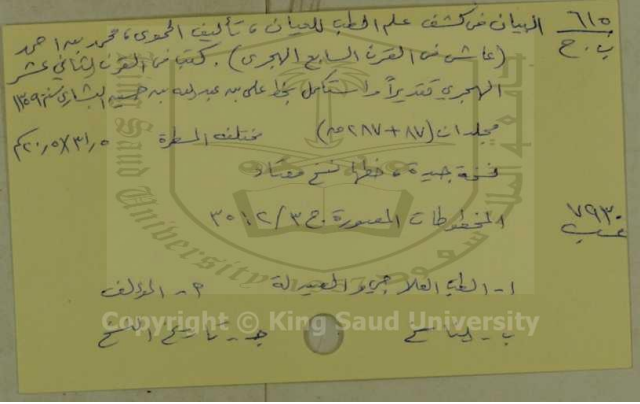 ٦١٥ البيان في كشف علم الطب للعيان ، تأليف الحموي ، محمد بن احمد
ب . ح (عاش في القرن السابع الهجري) . كتب في القرن الثاني عشر
الهجري تقديراً واستكمل بخط علي بن عبدالله بن حسين البشاري سنة ١٣٤٩
مجلدان (٨٧+٢٨٧ ص) مختلفة المسطرة ٣١٫٥×٢٠٫٥ سم
نسخة جيدة ، خطها نسخ معتاد
٧٩٣٠ المخطوطات المصورة ج ٣/٢ : ٣٥
طب
١- الطب العلاجي والصيدلة أ- المؤلف
ب- الناسخ ج- تاريخ النسخ
King Saud University
Copyright © King Saud University